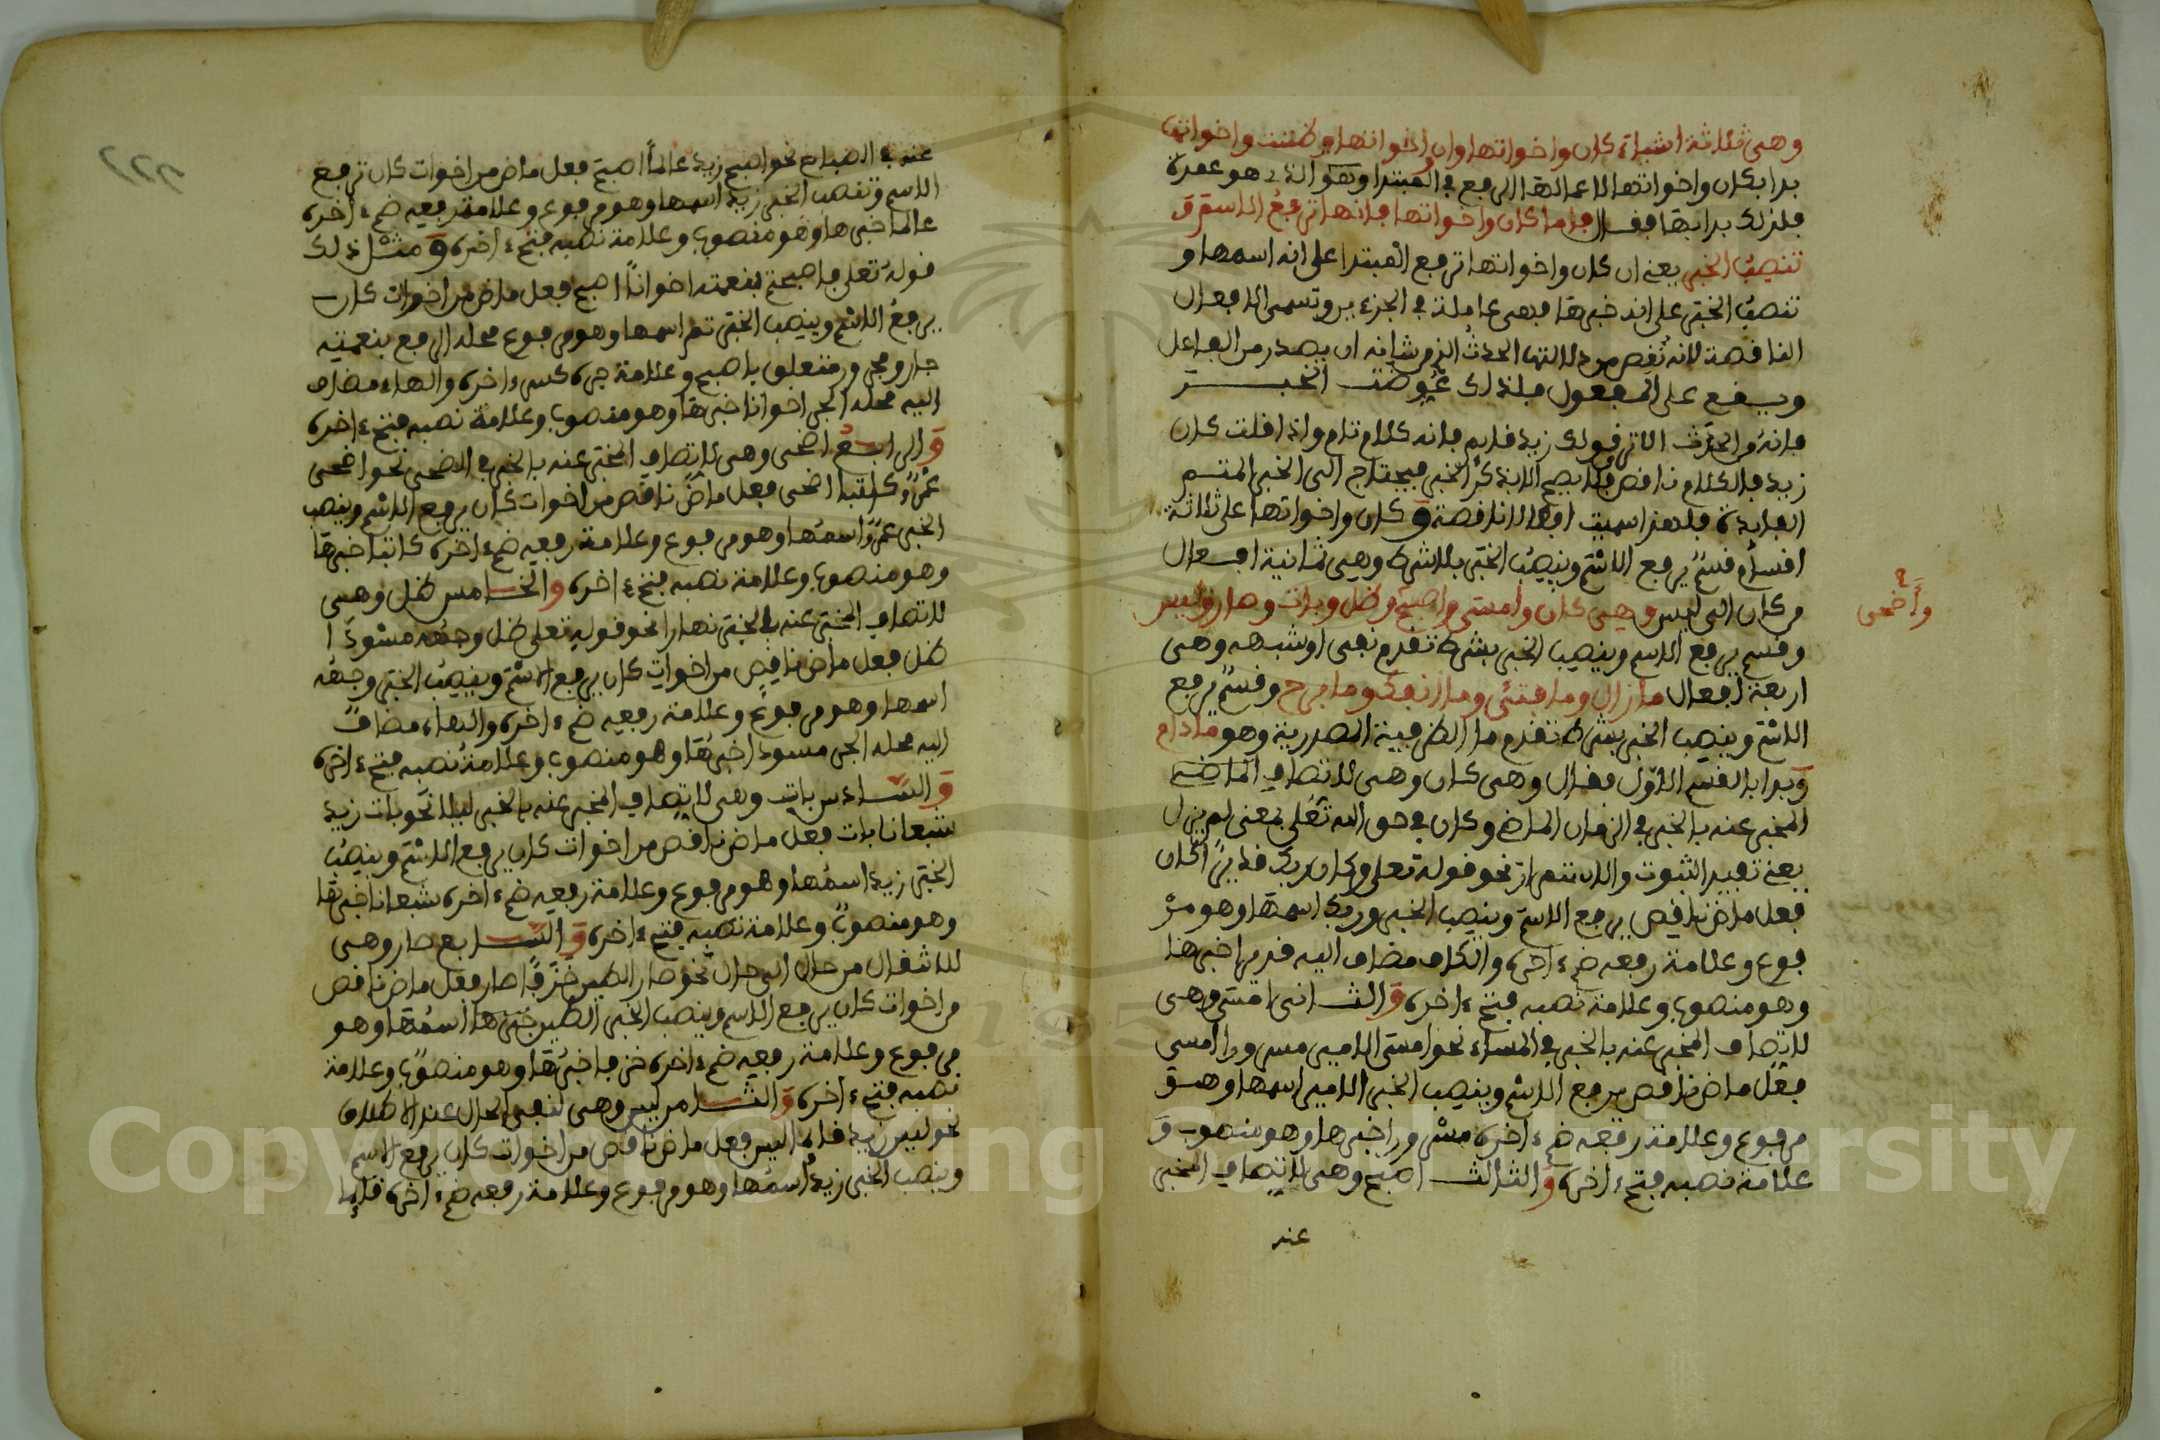 وهي ثلاثة اشياء كان واخواتها وان واخواتها وظننت واخواتها
بدا بكان واخواتها لاعمالها الرفع في المبتدا وهو الذي هو عمدة
فلذلك بدا بها فقال فاما كان واخواتها فانها ترفع الاسم و
تنصب الخبر يعني ان كان واخواتها ترفع المبتدا على انه اسمها و
تنصب الخبر على انه خبرها فهي عاملة في الجزءين وتسمى الافعال
الناقصة لانه نقص من دلالتها الحدث الذي شانه ان يصدر من الفاعل
ويقع على المفعول فلذلك عوضت الخبر
فانه من الحدث الا ترى قولك زيد قايم فانه كلام تام واذا قلت كان
زيد فالكلام ناقص فلا يصح الا بذكر الخبر فيحتاج الى الخبر المتمم
الفايدة فلهذا سميت افعالا ناقصة و كان واخواتها على ثلاثة
اقسام قسم يرفع الاسم وينصب الخبر بلا شرط وهي ثمانية افعال
من كان الى ليس وهي كان وامسى واصبح وظل وبات وصار وليس
واضحى
وقسم يرفع الاسم وينصب الخبر بشرط تقدم نفي او شبهه وهي
اربعة افعال ما زال وما فتئ وما انفك وما برح وقسم يرفع
الاسم وينصب الخبر بشرط تقدم ما الظرفية المصدرية وهو ما دام
وبدا بالقسم الاول فقال وهي كان وهي لاتصاف
المخبر عنه بالخبر في الزمان الماضي وكان في حق الله تعلى بمعنى لم يزل
يعني تفيد الثبوت والاستمرار نحو قوله تعلى وكان ربك قديرا كان
فعل ماض ناقص يرفع الاسم وينصب الخبر وربك اسمها وهو مر
فوع وعلامة رفعه ضمة اخره والكاف مضاف اليه قديرا خبرها
وهو منصوب وعلامة نصبه فتحة اخره والثاني امسى وهي
لاتصاف المخبر عنه بالخبر في المساء نحو امسى الامير مسرورا امسى
فعل ماض ناقص يرفع الاسم وينصب الخبر الامير اسمها وهو
مرفوع وعلامة رفعه ضمة اخره مسرورا خبرها وهو منصوب و
علامة نصبه فتحة اخره والثالث اصبح وهي لاتصاف المخبر
عنه
عنه في الصباح نحو اصبح زيد عالما اصبح فعل ماض من اخوات كان ترفع
الاسم وتنصب الخبر زيد اسمها وهو مرفوع وعلامة رفعه ضمة اخره
عالما خبرها وهو منصوب وعلامة نصبه فتحة اخره ومثل ذلك
قوله تعلى فاصبحتم بنعمته اخوانا اصبح فعل ماض من اخوات كان
يرفع الاسم وينصب الخبر تم اسمها وهو مرفوع محله الرفع بنعمته
جار ومجرور متعلق باصبح وعلامة جره كسرة اخره والهاء مضاف
اليه محله الجر اخوانا خبرها وهو منصوب وعلامة نصبه فتحة اخره
والرابع اضحى وهي لاتصاف المخبر عنه بالخبر في الضحى نحو اضحى
عمرو كاتبا اضحى فعل ماض ناقص من اخوات كان يرفع الاسم وينصب
الخبر عمرو اسمها وهو مرفوع وعلامة رفعه ضمة اخره كاتبا خبرها
وهو منصوب وعلامة نصبه فتحة اخره والخامس ظل وهي
لاتصاف المخبر عنه بالخبر نهارا نحو قوله تعلى ظل وجهه مسودا
ظل فعل ماض ناقص من اخوات كان يرفع الاسم وينصب الخبر وجهه
اسمها وهو مرفوع وعلامة رفعه ضمة اخره والهاء مضاف
اليه محله الجر مسودا خبرها وهو منصوب وعلامة نصبه فتحة اخره
والسادس بات وهي لاتصاف المخبر عنه بالخبر ليلا نحو بات زيد
شبعانا بات فعل ماض ناقص من اخوات كان يرفع الاسم وينصب
الخبر زيد اسمها وهو مرفوع وعلامة رفعه ضمة اخره شبعانا خبرها
وهو منصوب وعلامة نصبه فتحة اخره والسابع صار وهي
للانتقال من حال الى حال نحو صار الطين خزفا صار فعل ماض ناقص
من اخوات كان يرفع الاسم وينصب الخبر الطين اسمها وهو
مرفوع وعلامة رفعه ضمة اخره خزفا خبرها وهو منصوب وعلامة
نصبه فتحة اخره والثامن ليس وهي لنفي الحال عند الاطلاق
نحو ليس زيد قايما ليس فعل ماض ناقص من اخوات كان يرفع الاسم
وينصب الخبر زيد اسمها وهو مرفوع وعلامة رفعه ضمة اخره قايما
Copyright © King Saud University
195